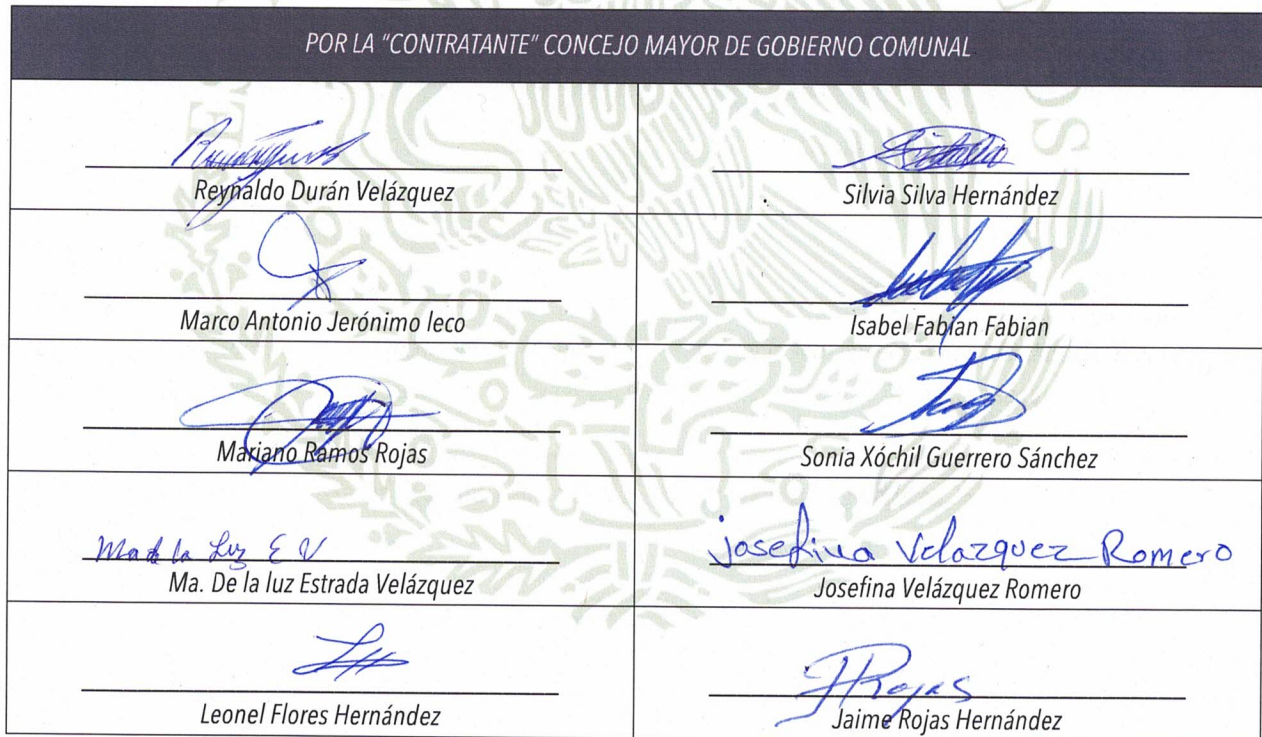 POR LA "CONTRATANTE" CONCEJO MAYOR DE GOBIERNO COMUNAL
Reynaldo Durán Velázquez
Silvia Silva Hernández
Marco Antonio Jerónimo leco
Isabel Fabian Fabian
Mariano Ramos Rojas
Sonia Xóchil Guerrero Sánchez
Ma de la Luz E V
Ma. De la luz Estrada Velázquez
josefina Velazquez Romero
Josefina Velázquez Romero
Leonel Flores Hernández
JRojas
Jaime Rojas Hernández